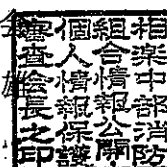 相楽中部消防
組合情報公開
個人情報保護
審査会長之印
雄